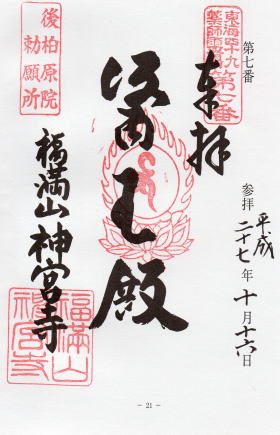 第七番
東海四十九
第七番
奉拝
参拝 平成二十七年十月十六日
王殿
後柏原院
勅願所
福満山神宮寺
福満山
神宮寺
- 21 -